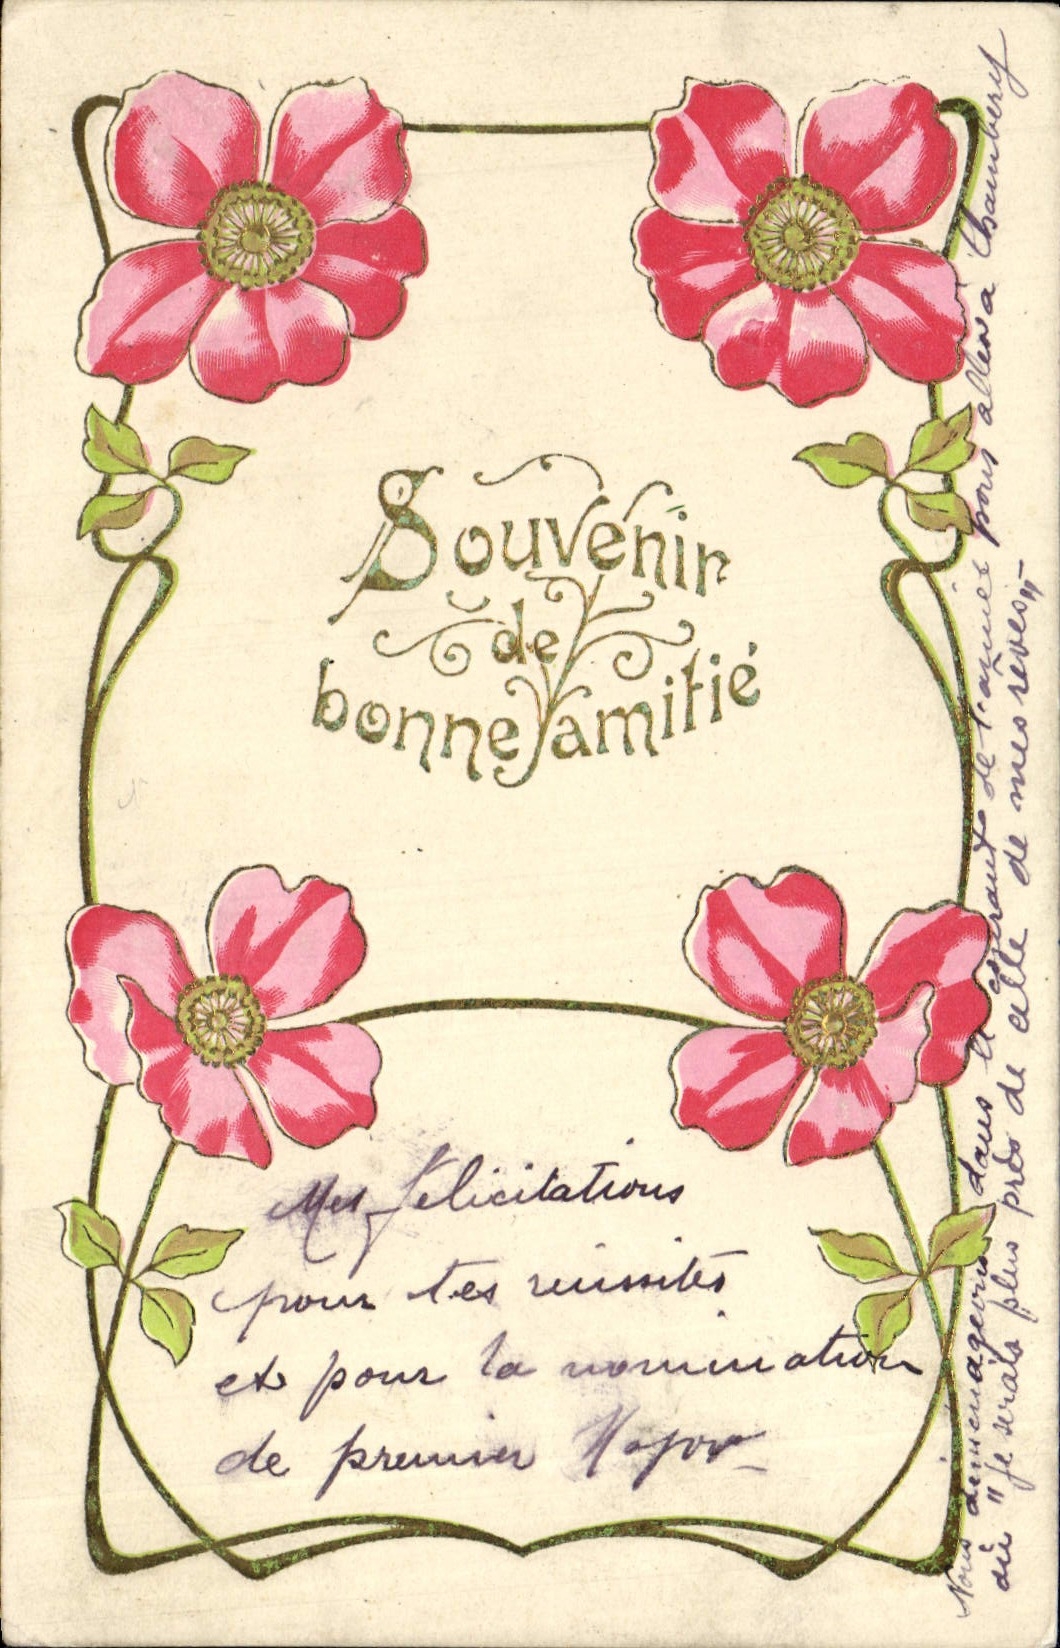 Souvenir
de
bonne amitié
Mes félicitations
pour tes réussites
et pour la nomination
de premier Major
Nous déménageons dans le courant de l'année nous allons à Chambery
où "je serais plus près de celle de mes rêves"